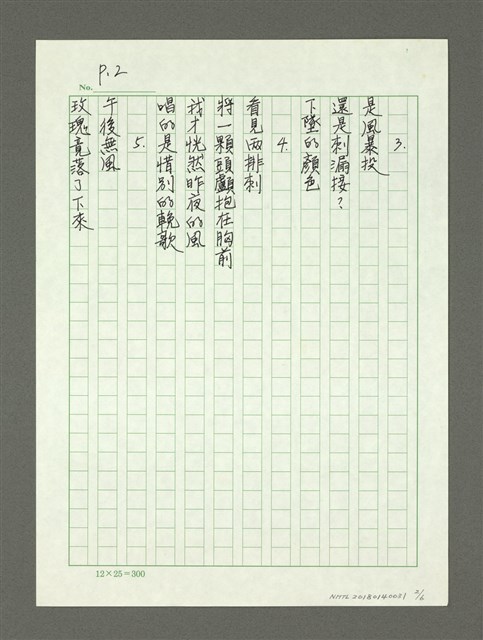 No. P.2
3.
是風暴投
還是刺漏接？
下墜的顏色
4.
看見兩排刺
將一顆頭顱抱在胸前
我才恍然昨夜的風
唱的是惜別的輓歌
5.
午後無風
玫瑰竟落了下來
12×25=300
NMTL20180140031 2/6